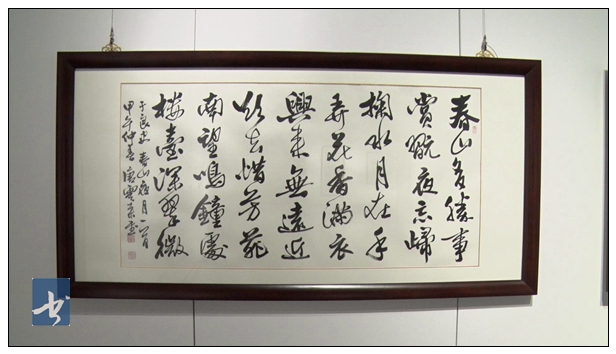 春山多勝事
賞翫夜忘歸
掬水月在手
弄花香滿衣
興来無遠近
欲去惜芳菲
南望鳴鐘處
楼臺深翠微
于良史 春山夜月一首
甲午仲春
书